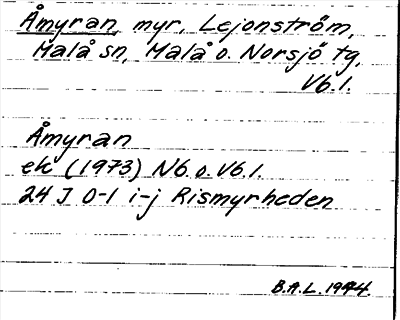 Åmyran, myr, Lejonström,
Malå sn, Malå o. Norsjö tg,
Vb.l.
Åmyran
ek (1973) Nb. o. Vb.l.
24 J 0-1 i-j Rismyrheden
B.A.L. 1974.